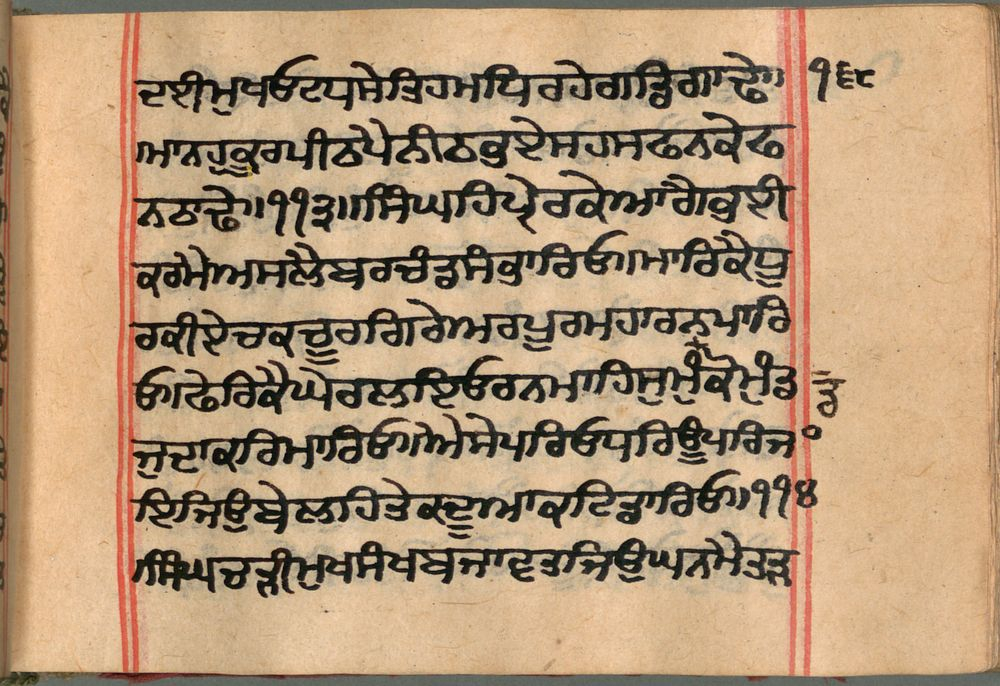 ਦਈਮੁਖਓਟਧਸੇਤਿਹਮਧਿਰਹੇਗਡ੍ਵਿਗਾਢੇ॥ ੧੬੮
ਮਾਨਹੁਕੂਰਮਪੀਠਪੈਨੀਠਕੁਏਸਹਸਫਨਕੇਫ
ਨਠਾਢੇ॥੧੧੩॥ਸਿੰਘਹਿਪ੍ਰੇਰਕੇਆਗੈਕੁਈ
ਕਰਮੇਅਸਲੈਬਰਚੰਡਸੰਕੁਾਰਿਓ॥ਮਾਰਿਕੈਧੂ
ਰਕੀਏਚਕਚੂਰਗਿਰੇਅਰਪੂਰਮਹਾਰਨਪਾਰਿ
ਓ॥ਫੇਰਿਕੈਘੇਰਲਾਇਓਰਨਮਾਹਿਸੁਮੁੰਕੋਮੁੰਡ
ਜੁਦਾਕਰਿਮਾਰਿਓ॥ਐਸੇਪਰਿਓਧਰਿਊਪਰਿਜਾ
ਇਜਿਉਬੇਲਹਿਤੇਕਦੂਆਕਟਿਡਾਰਿਓ॥੧੧੪
ਸਿੰਘਚੜੀਮੁਖਸੰਖਬਜਾਵਤਜਿਉਘਨਮੈਤੜ